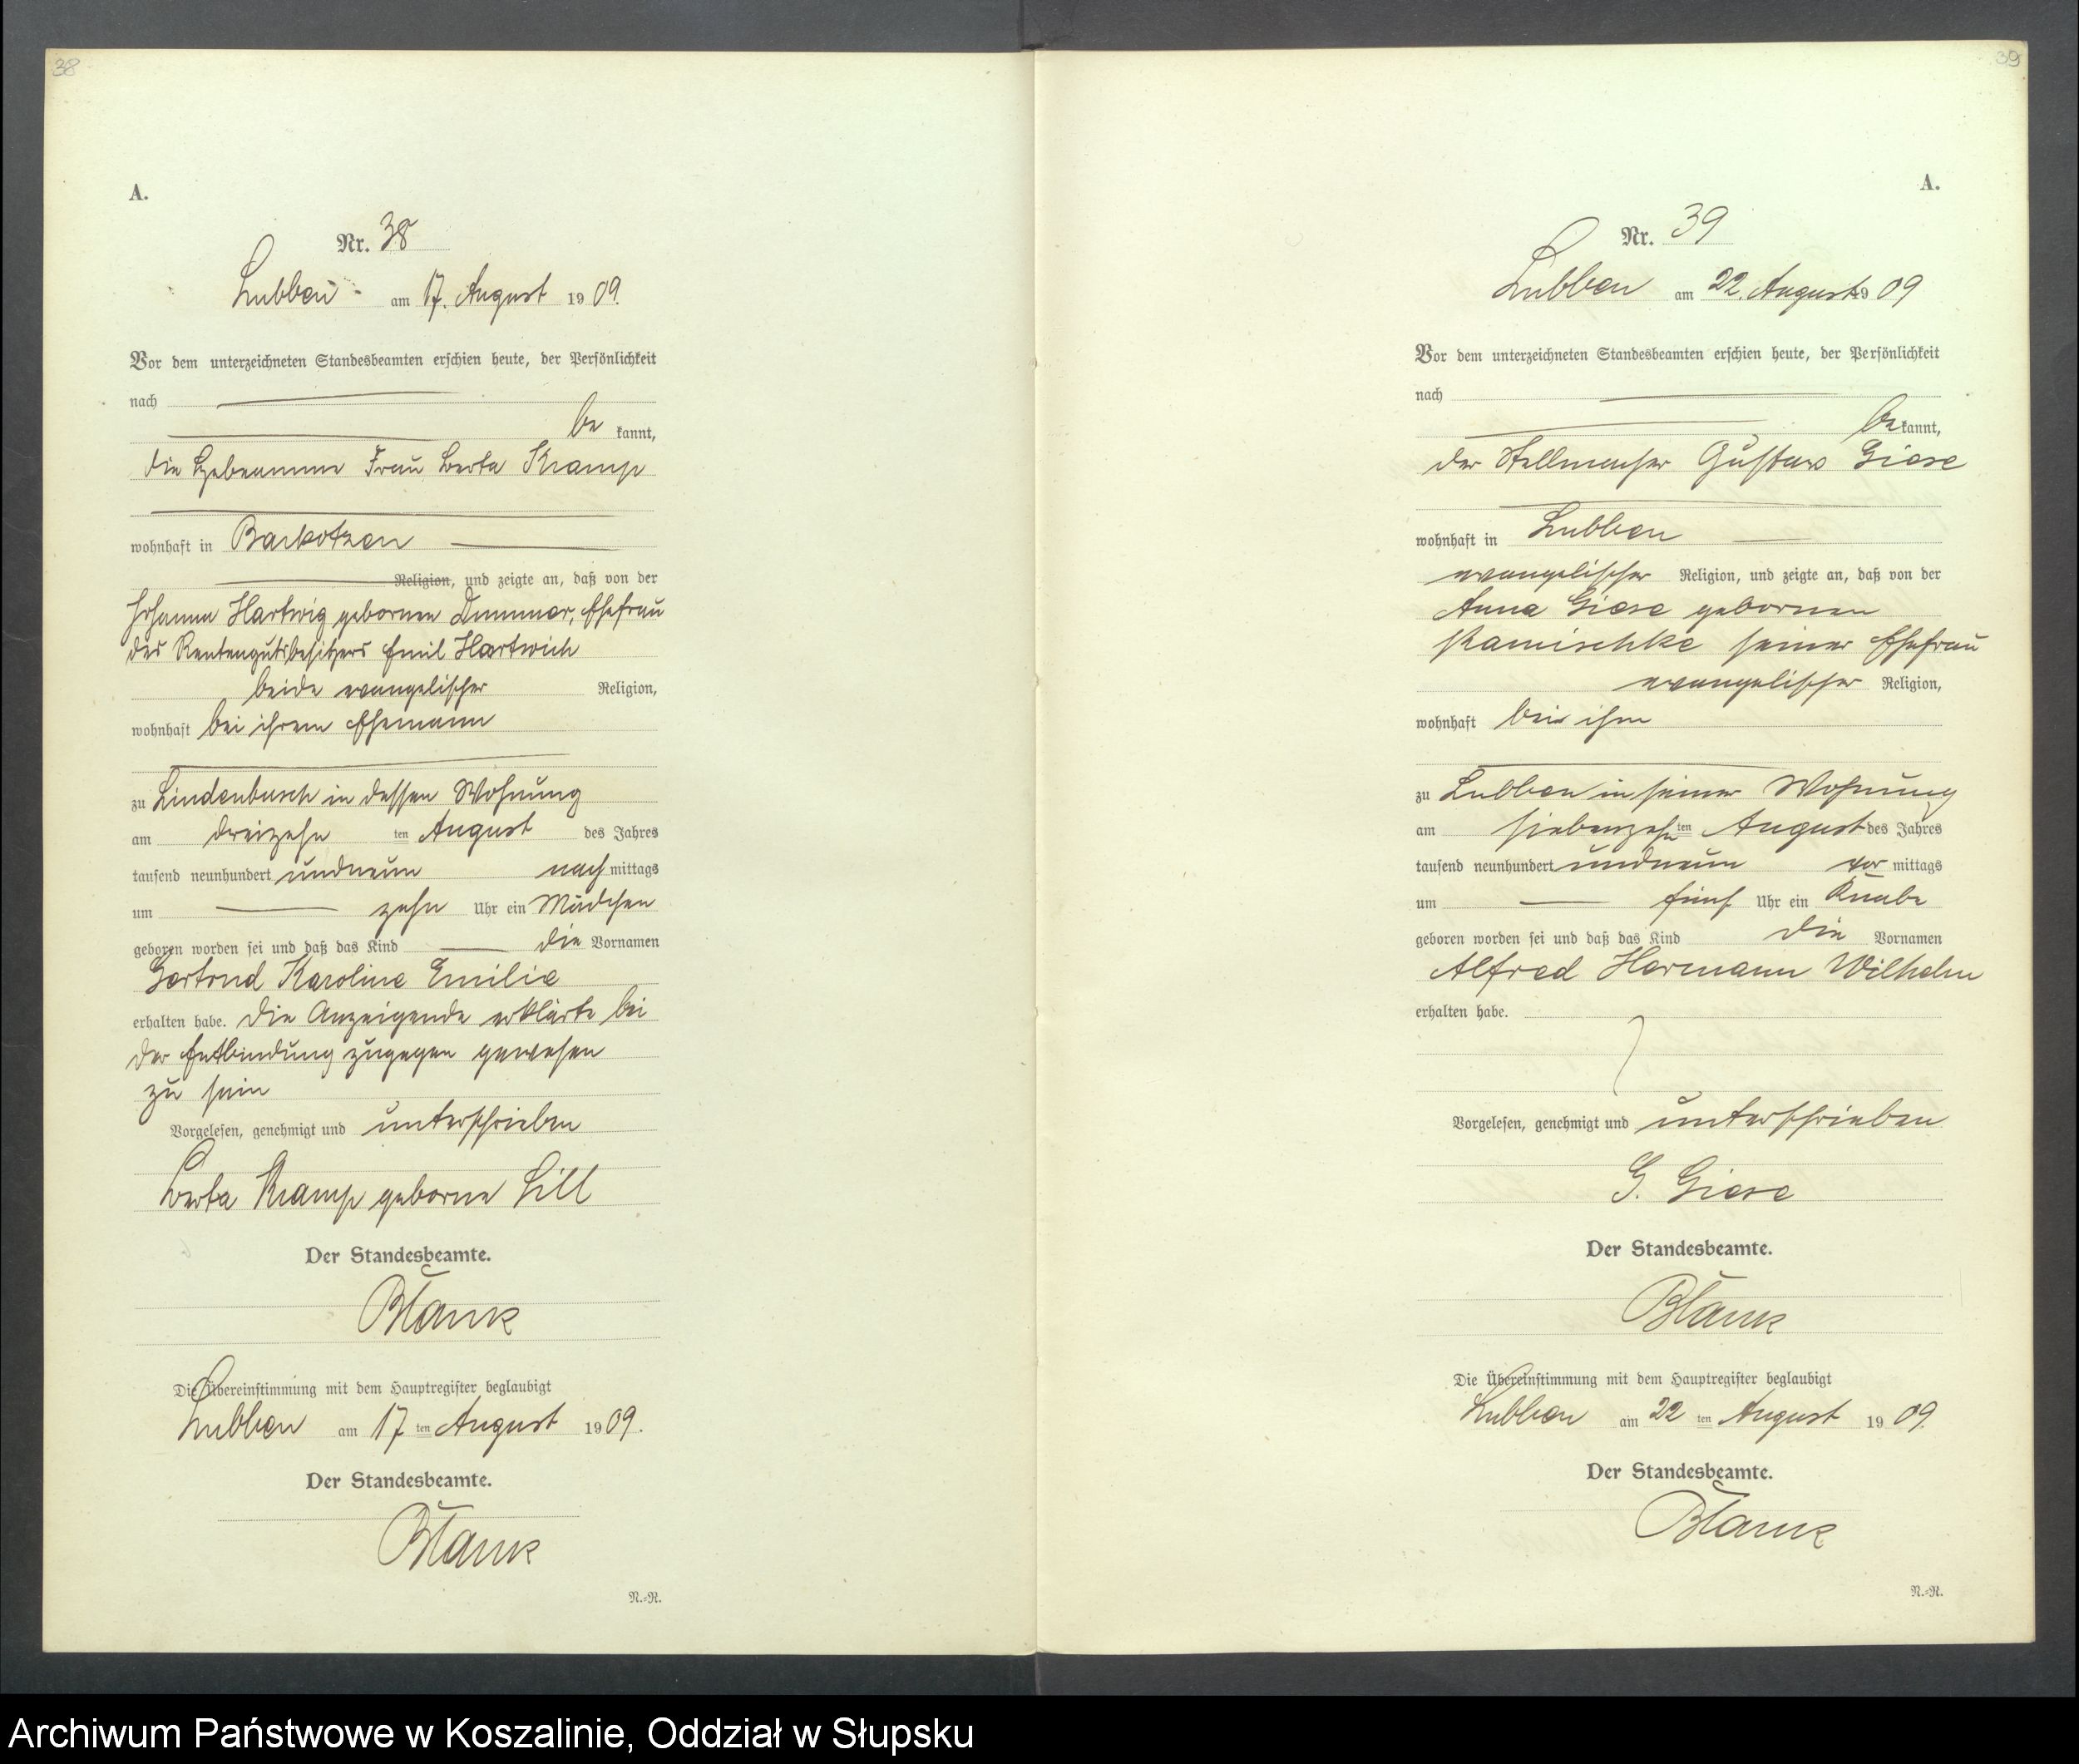 38
A.
Nr. 38
Lubben am 17. August 1909.
Vor dem unterzeichneten Standesbeamten erschien heute, der Persönlichkeit
nach
be kannt,
die Hebeamme Frau Berta Kramp
wohnhaft in Barkotzen
Religion, und zeigte an, daß von der
Johanna Hartwig gebornen Dummer, Ehefrau
des Rentengutsbesitzers Emil Hartwich
beide evangelischer Religion,
wohnhaft bei ihrem Ehemann
zu Lindenbusch in dessen Wohnung
am dreizehn ten August des Jahres
tausend neunhundert undneun nachmittags
um zehn Uhr ein Mädchen
geboren worden sei und daß das Kind die Vornamen
Gertrud Karoline Emilie
erhalten habe. Die Anzeigende erklärte bei
der Entbindung zugegen gewesen
zu sein
Vorgelesen, genehmigt und unterschrieben
Berta Kramp geborne Lill
Der Standesbeamte.
Blank
Die Übereinstimmung mit dem Hauptregister beglaubigt
Lubben am 17 ten August 1909.
Der Standesbeamte.
Blank
N.-R.
39
A.
Nr. 39
Lubben am 22. August 1909
Vor dem unterzeichneten Standesbeamten erschien heute, der Persönlichkeit
nach
bekannt,
der Stellmacher Gustav Giese
wohnhaft in Lubben
evangelischer Religion, und zeigte an, daß von der
Anna Giese gebornen
Kamischke seiner Ehefrau
evangelischer Religion,
wohnhaft bei ihm
zu Lubben in seiner Wohnung
am siebenzehn ten August des Jahres
tausend neunhundert undneun vor mittags
um fünf Uhr ein Knabe
geboren worden sei und daß das Kind die Vornamen
Alfred Hermann Wilhelm
erhalten habe.
Vorgelesen, genehmigt und unterschrieben
G. Giese
Der Standesbeamte.
Blank
Die Übereinstimmung mit dem Hauptregister beglaubigt
Lubben am 22 ten August 1909.
Der Standesbeamte.
Blank
N.-R.
Archiwum Państwowe w Koszalinie, Oddział w Słupsku